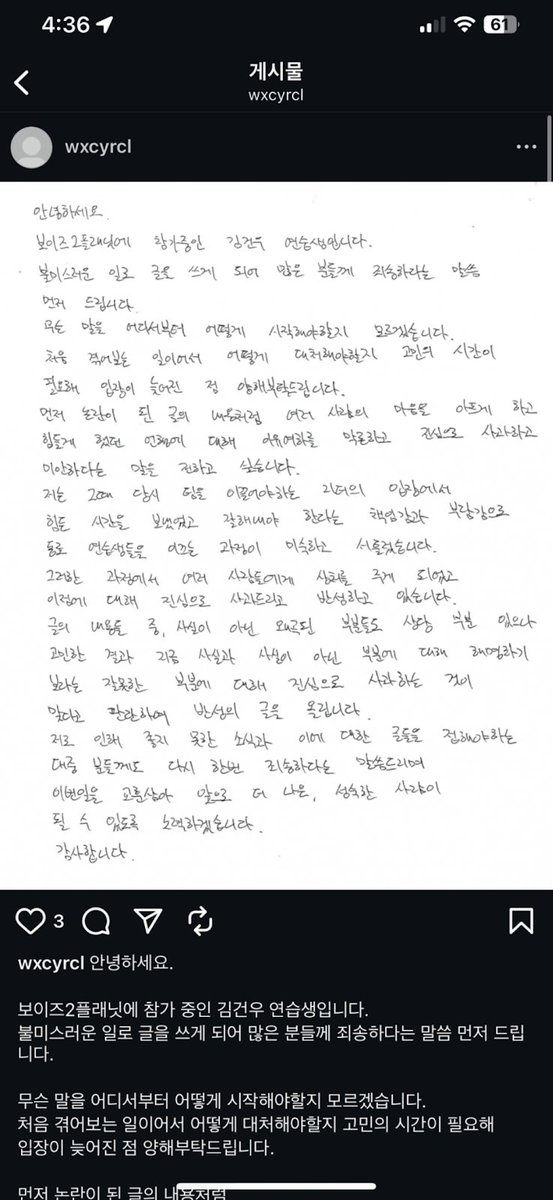 4:36
61
게시물
wxcyrcl
wxcyrcl
안녕하세요.
보이즈2플래닛에 참가중인 김건우 연습생입니다.
불미스러운 일로 글을 쓰게 되어 많은 분들께 죄송하다는 말씀
먼저 드립니다.
무슨 말을 어디서부터 어떻게 시작해야할지 모르겠습니다.
처음 겪어보는 일이어서 어떻게 대처해야할지 고민의 시간이
필요해 입장이 늦어진 점 양해부탁드립니다.
먼저 논란이 된 글의 내용처럼 여러 사람의 마음을 아프게 하고
힘들게 했던 언행에 대해 이유여하를 막론하고 진심으로 사과하고
미안하다는 말을 전하고 싶습니다.
저는 그때 당시 팀을 이끌어야하는 리더의 입장에서
힘든 시간을 보냈었고 잘해내야 한다는 책임감과 부담감으로
동료 연습생들을 이끄는 과정이 미숙하고 서툴렀습니다.
그러한 과정에서 여러 사람들에게 상처를 주게 되었고
이점에 대해 진심으로 사과드리고 반성하고 있습니다.
글의 내용들 중, 사실이 아닌 왜곡된 부분들도 상당 부분 있으나
고민한 결과 지금 사실과 사실이 아닌 부분에 대해 해명하기
보다는 잘못한 부분에 대해 진심으로 사과하는 것이
맞다고 판단하여 반성의 글을 올립니다.
저로 인해 좋지 못한 소식과 이에 대한 글들을 접해야하는
대중 분들께도 다시 한번 죄송하다는 말씀드리며
이번일을 교훈삼아 앞으로 더 나은, 성숙한 사람이
될 수 있도록 노력하겠습니다.
감사합니다.
3
wxcyrcl 안녕하세요.
보이즈2플래닛에 참가 중인 김건우 연습생입니다.
불미스러운 일로 글을 쓰게 되어 많은 분들께 죄송하다는 말씀 먼저 드립
니다.
무슨 말을 어디서부터 어떻게 시작해야할지 모르겠습니다.
처음 겪어보는 일이어서 어떻게 대처해야할지 고민의 시간이 필요해
입장이 늦어진 점 양해부탁드립니다.
먼저 논란이 된 글의 내용처럼